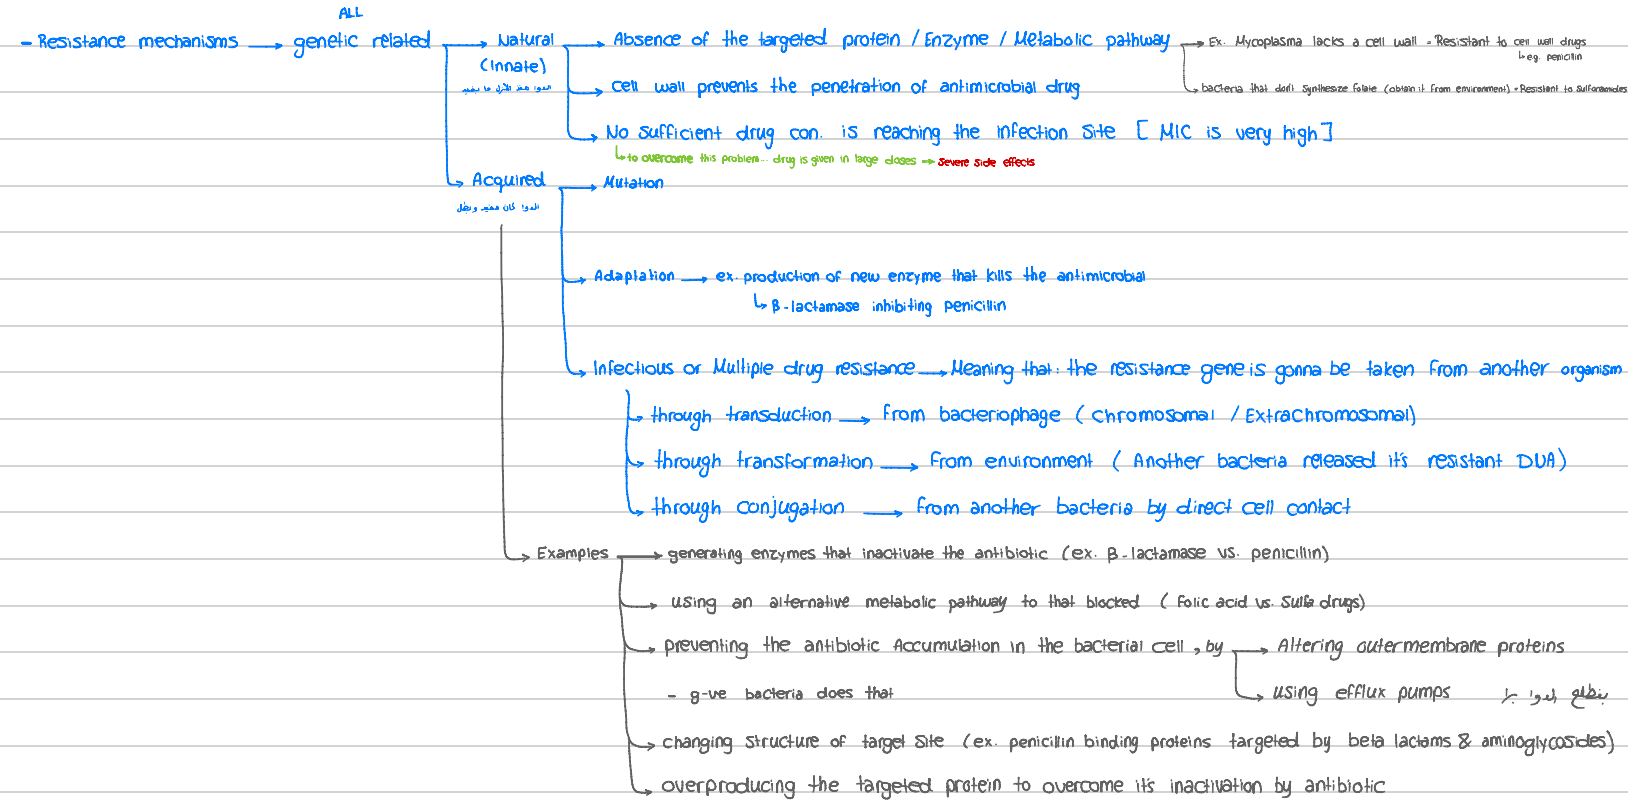 ALL
- Resistance mechanisms → genetic related → Natural → Absence of the targeted protein / Enzyme / Metabolic pathway → Ex. Mycoplasma lacks a cell wall = Resistant to cell wall drugs
↳ eg. penicillin
(Innate)
الدوا من الأول ما بفيد
→ cell wall prevents the penetration of antimicrobial drug
→ bacteria that don't synthesize folate (obtain it from environment) = Resistant to sulfonamides
→ No sufficient drug con. is reaching the infection site [ MIC is very high ]
↳ to overcome this problem... drug is given in large doses → severe side effects
→ Acquired → Mutation
الدوا كان مفيد وبطل
→ Adaptation → ex. production of new enzyme that kills the antimicrobial
↳ β-lactamase inhibiting penicillin
→ Infectious or Multiple drug resistance → Meaning that: the resistance gene is gonna be taken from another organism
→ through transduction → from bacteriophage ( chromosomal / Extrachromosomal)
→ through transformation → from environment ( Another bacteria released it's resistant DNA)
→ through conjugation → from another bacteria by direct cell contact
→ Examples → generating enzymes that inactivate the antibiotic (ex. β-lactamase vs. penicillin)
→ using an alternative metabolic pathway to that blocked ( Folic acid vs. Sulfa drugs)
→ preventing the antibiotic Accumulation in the bacterial cell, by → Altering outermembrane proteins
- g-ve bacteria does that
→ using efflux pumps بتطلع الدوا برا
→ changing structure of target site (ex. penicillin binding proteins targeted by beta lactams & aminoglycosides)
→ overproducing the targeted protein to overcome it's inactivation by antibiotic